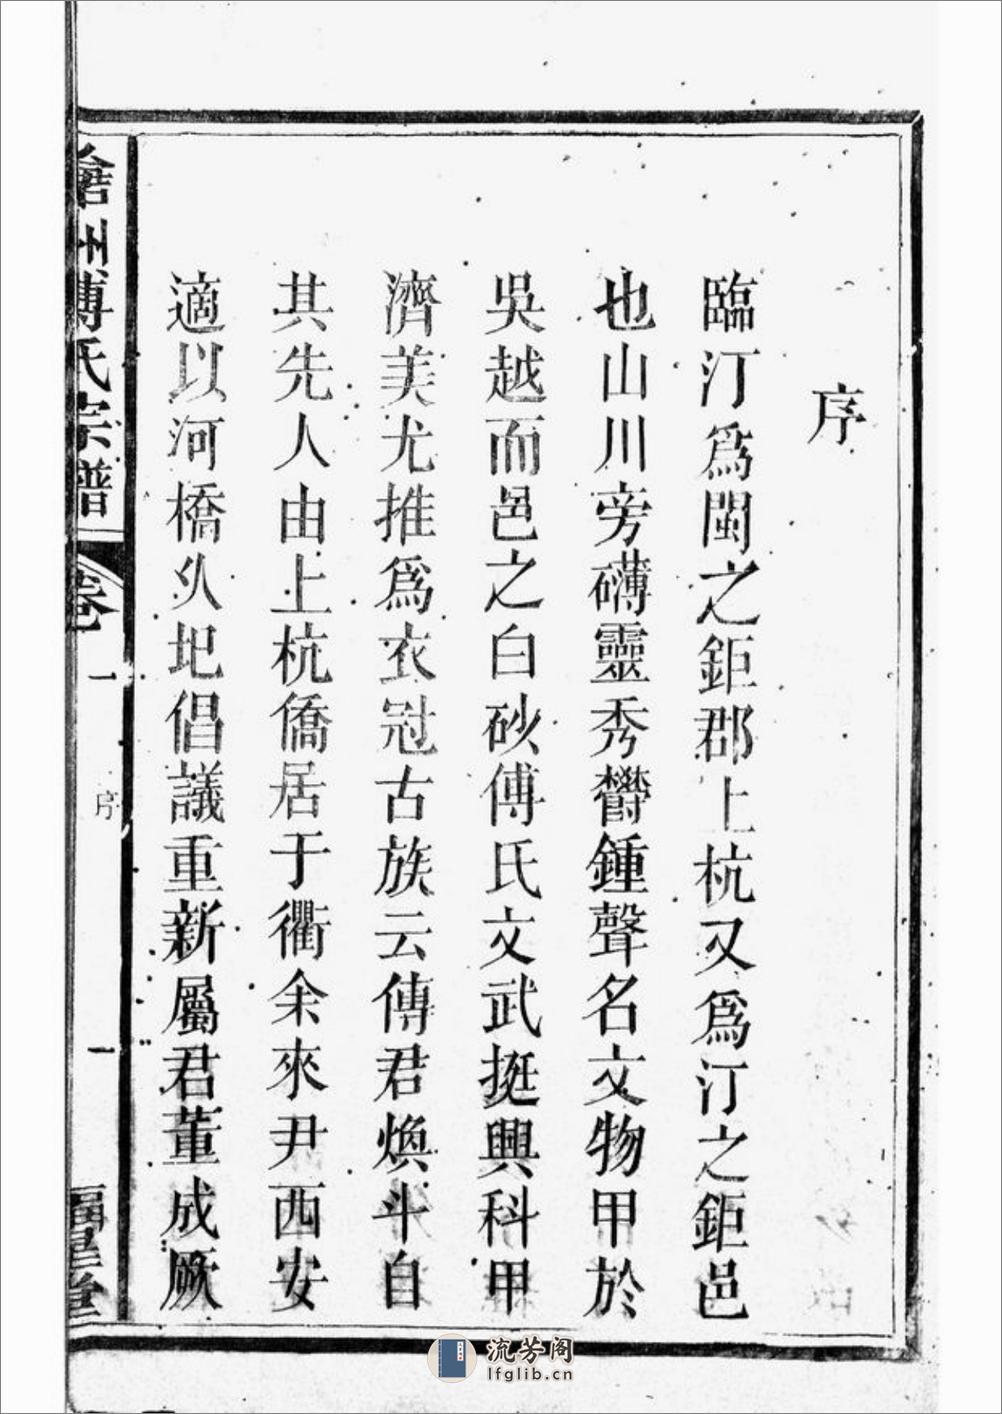 序
臨汀爲閩之鉅郡上杭又爲汀之鉅邑
也山川旁礴靈秀欝鍾聲名文物甲於
吳越而邑之白砂傅氏文武挺興科甲
濟美尤推爲衣冠古族云傳君煥斗自
其先人由上杭僑居于衢余來尹西安
適以河橋火圯倡議重新屬君董成厥
州傅氏宗譜
卷一
序
一
堂
流芳阁
lfglib.cn